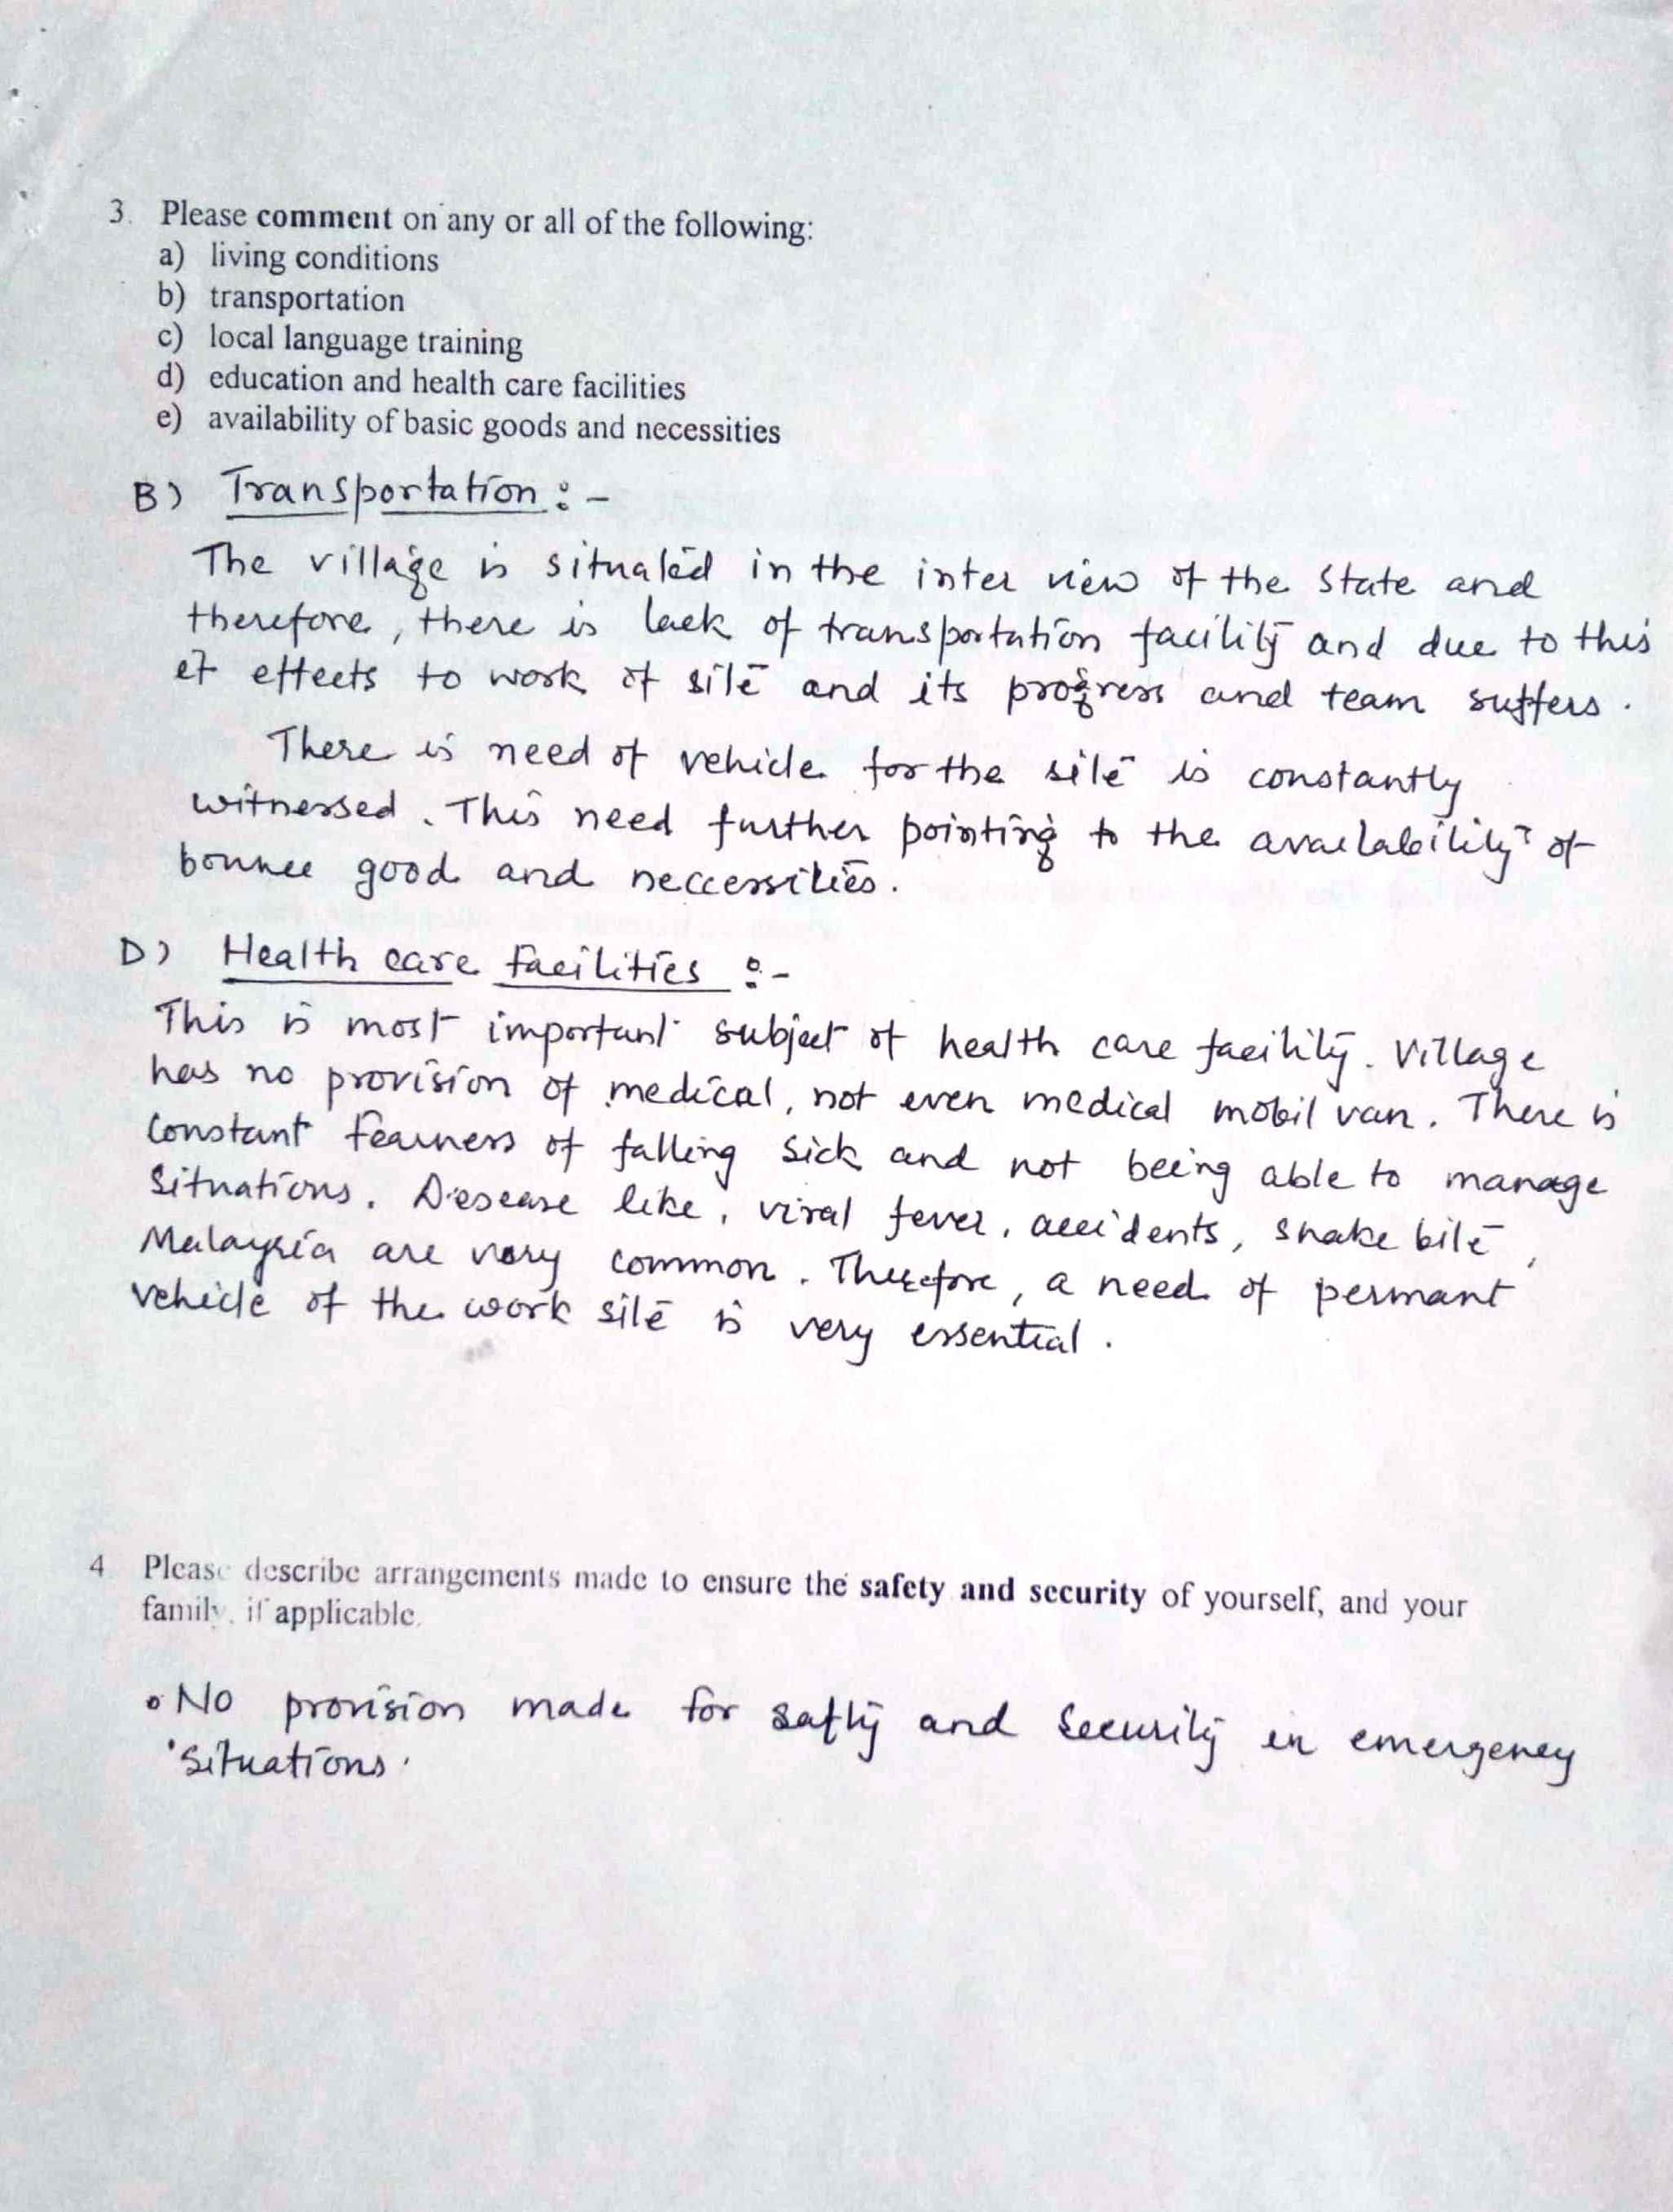 3. Please comment on any or all of the following:
a) living conditions
b) transportation
c) local language training
d) education and health care facilities
e) availability of basic goods and necessities
B) Transportation :-
The village is situated in the inter view of the State and
therefore, there is lack of transportation facility and due to this
it effects to work of site and its progress and team suffers.
There is need of vehicle for the site is constantly
witnessed. This need further pointing to the availability of
good and neccessities.
D) Health care facilities :-
This is most important subject of health care facility. Village
has no provision of medical, not even medical mobil van. There is
Constant fearness of falling sick and not being able to manage
Situations. Diesease like, viral fever, accidents, snake bite,
Malaysia are very common. Therefore, a need of permant
vehicle of the work site is very essential.
4 Please describe arrangements made to ensure the safety and security of yourself, and your
family, if applicable.
• No provision made for safty and Security in emergency
situations.